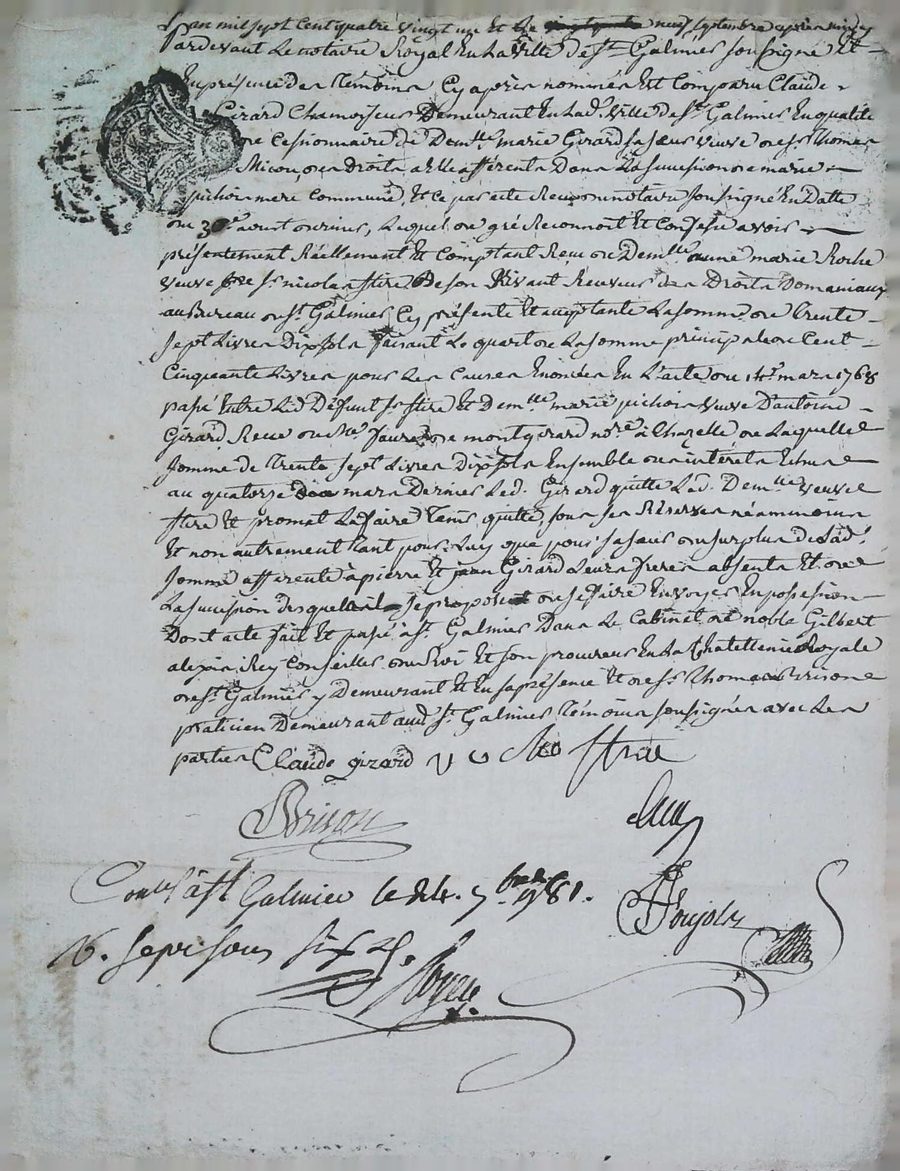 L'an mil sept cent quatre vingt un et le neuf septembre après midy
Pardevant Le notaire Royal En La Ville de St Galmier soussigné Et
En présence des témoins Cy après nommés Est Comparu Claude
Girard Chamoiseur Demeurant En Lad. Ville de St Galmier En qualité
de Cesionnaire de Demlle marie Girard sa sœur veuve de sr thomas
Micou, des Droits a Elle afférents Dans La sucession de marie
pichoin mere Commune, Et ce par acte Reçu du notaire soussigné En Datte
du 30e avout dernier, Lequel de gré Reconnoit Et Confesse avoir
présentement Réellement Et Comptant Reçu de Demlle anne marie Roche
veuve de sr nicolas ftire De son Vivant Receveur des Droits Domaniaux
au Bureau de St Galmier Cy présente Et aceptante La somme de trente
sept Livres Dix sols faisant Le quart de La somme principale de Cent
Cinquante Livres pour Les Causes Enoncées En L'acte du 14e mars 1768
passé Entre Led Défunt sr ftire Et Demlle marie pichoin veuve D'antoine
Girard Reçu du Me faure de montgirard nore à Chazelle de Laquelle
somme de trente sept Livres Dix sols Ensemble des intérêts Echus
au quatorze mars Dernier Led. Girard quitte Lad. Demlle veuve
ftire Et promet La faire tenir quitte, sous ses Réserves néanmoins
Et non autrement tant pour Luy que pour sa sœur du surplus de Lad.
somme afférente à pierre Et jean Girard Leurs freres absents Et de
La sucession desquels il se propose de se faire Envoyer En possession
Dont acte fait Et passé à St Galmier Dans Le Cabinet de noble Gilbert
alexis Rey Conseiller du Roi Et son procureur En La Chatellenie Royale
de St Galmier y Demeurant Et En sa présence Et de sr thomas Brison
praticien Demeurant aud St Galmier témoins soussignés avec Les
parties Claude girard
Brison
Conllé à St Galmier le 7bre 1781.
sept sous six d.